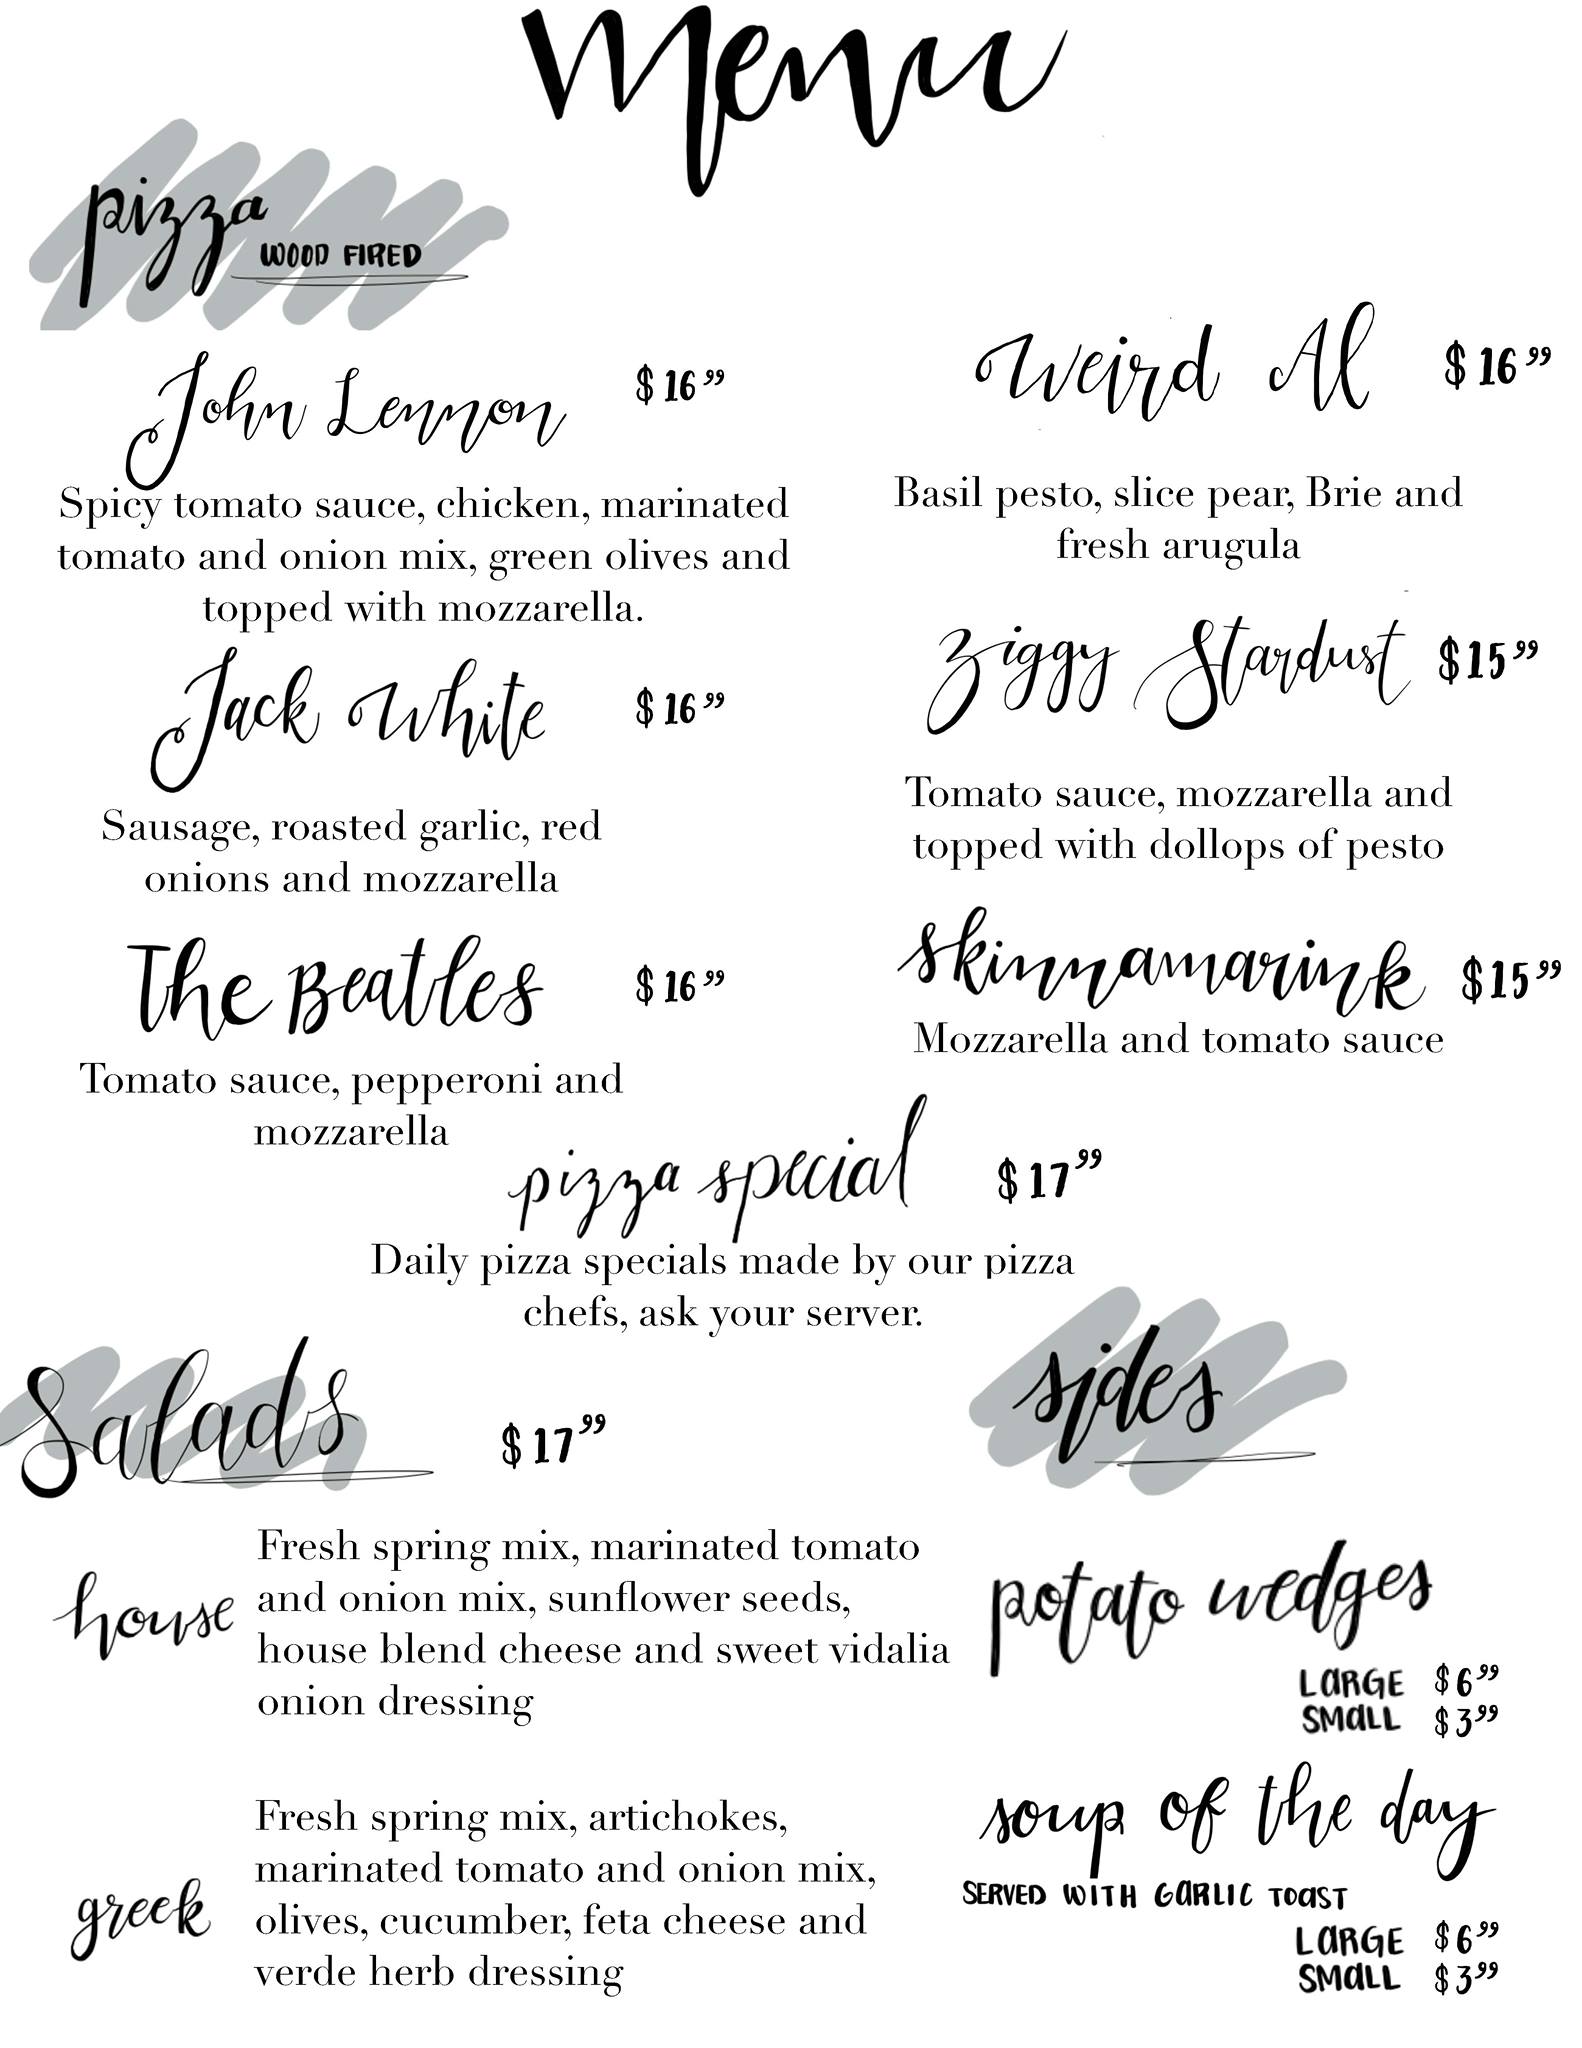 Menu
pizza
WOOD FIRED
John Lennon $16.99
Spicy tomato sauce, chicken, marinated
tomato and onion mix, green olives and
topped with mozzarella.
Jack White $16.99
Sausage, roasted garlic, red
onions and mozzarella
The Beatles $16.99
Tomato sauce, pepperoni and
mozzarella
Weird Al $16.99
Basil pesto, slice pear, Brie and
fresh arugula
Ziggy Stardust $15.99
Tomato sauce, mozzarella and
topped with dollops of pesto
Skinnamarink $15.99
Mozzarella and tomato sauce
pizza special $17.99
Daily pizza specials made by our pizza
chefs, ask your server.
Salads $17.99
house
Fresh spring mix, marinated tomato
and onion mix, sunflower seeds,
house blend cheese and sweet vidalia
onion dressing
greek
Fresh spring mix, artichokes,
marinated tomato and onion mix,
olives, cucumber, feta cheese and
verde herb dressing
sides
potato wedges
LARGE $6.99
SMALL $3.99
soup of the day
SERVED WITH GARLIC TOAST
LARGE $6.99
SMALL $3.99